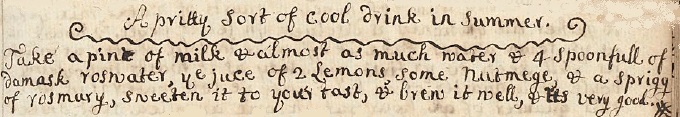 A pritty sort of cool drink in summer.
Take a pint of milk & almost as much water & 4 spoonfull of
damask roswater, ye juce of 2 Lemons some Nutmege, & a sprigg
of rosmury, sweeten it to your tast, & brew it well, & its very good.